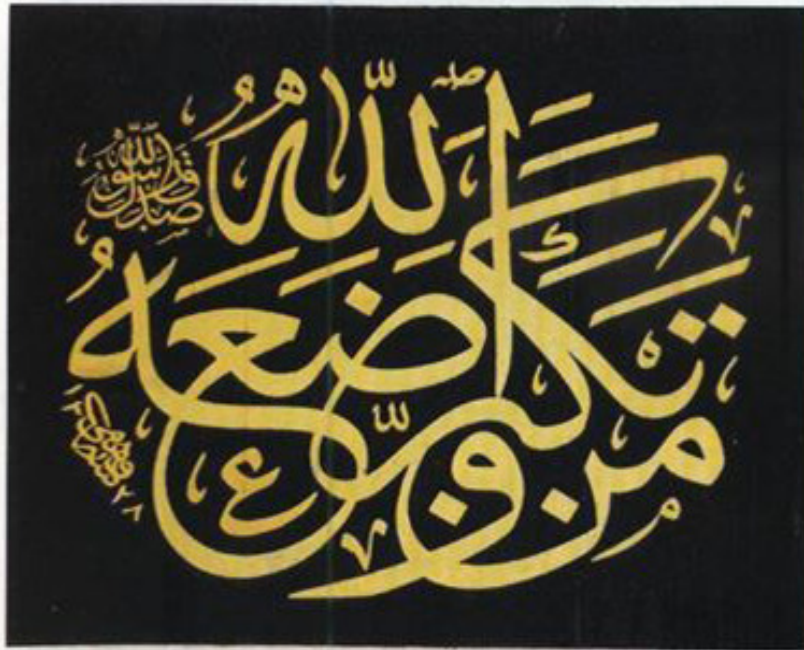 من تكبر وضعه الله
صدق رسول الله
١٣٢٨